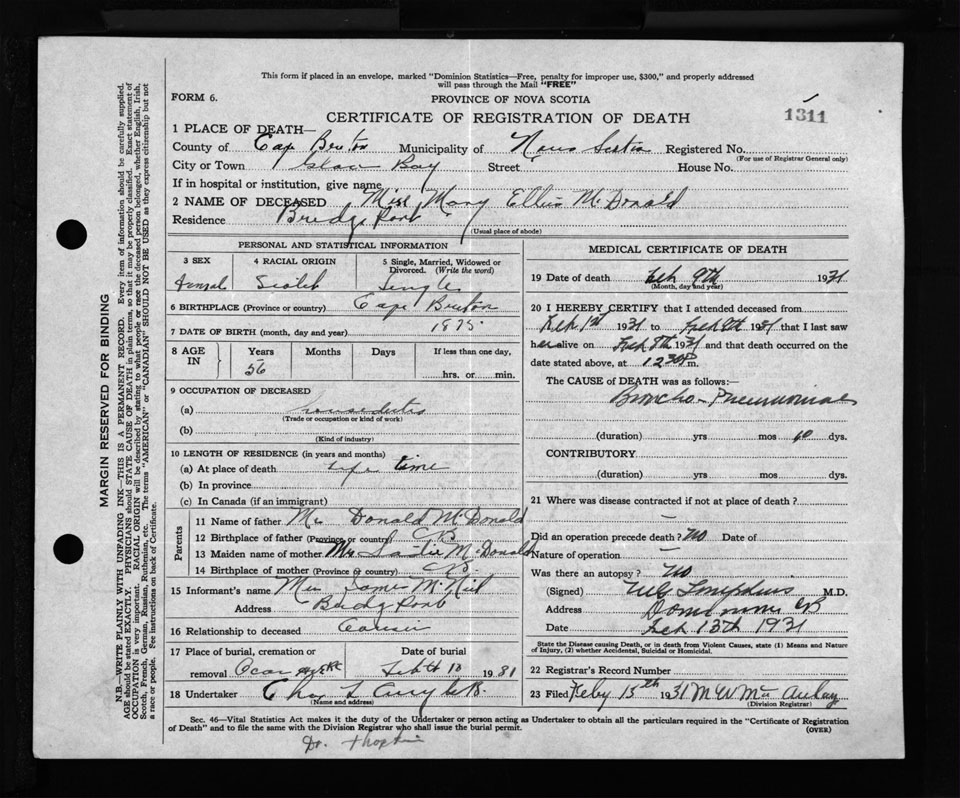 This form if placed in an envelope, marked "Dominion Statistics—Free, penalty for improper use, $300," and properly addressed
will pass through the Mail "FREE"
FORM 6.
PROVINCE OF NOVA SCOTIA
1311
CERTIFICATE OF REGISTRATION OF DEATH
1 PLACE OF DEATH—
County of Cape Breton Municipality of Nova Scotia Registered No.
(For use of Registrar General only)
City or Town Glace Bay Street House No.
If in hospital or institution, give name
2 NAME OF DECEASED Miss Mary Ellen McDonald
Residence Bridgeport
(Usual place of abode)
PERSONAL AND STATISTICAL INFORMATION
3 SEX
4 RACIAL ORIGIN
5 Single, Married, Widowed or Divorced. (Write the word)
Femal Scotch Single
6 BIRTHPLACE (Province or country) Cape Breton
7 DATE OF BIRTH (month, day and year) 1875
8 AGE IN Years Months Days If less than one day,
56 hrs. or min.
9 OCCUPATION OF DECEASED
(a) houseduties
(Trade or occupation or kind of work)
(b)
(Kind of industry)
10 LENGTH OF RESIDENCE (in years and months)
(a) At place of death life time
(b) In province
(c) In Canada (if an immigrant)
Parents
11 Name of father Mr Donald McDonald
12 Birthplace of father (Province or country) CB
13 Maiden name of mother Mrs McDonald
14 Birthplace of mother (Province or country) CB.
15 Informant's name McNeil
Address Bridgeport
16 Relationship to deceased Cousin
17 Place of burial, cremation or removal Date of burial
10 1931
18 Undertaker
(Name and address)
MEDICAL CERTIFICATE OF DEATH
19 Date of death Feb 9th 1931
(Month, day and year)
20 I HEREBY CERTIFY that I attended deceased from
Feb 1st 1931 to Feb 9th 1931 that I last saw
her alive on Feb 9th 1931 and that death occurred on the
date stated above, at 12.30 P m.
The CAUSE of DEATH was as follows:—
Broncho-Pneumonia
(duration) yrs mos 10 dys.
CONTRIBUTORY
(duration) yrs mos dys.
21 Where was disease contracted if not at place of death?
—
Did an operation precede death? No Date of
Nature of operation —
Was there an autopsy? No
(Signed) M.D.
Address Dominion CB
Date Feb 13th 1931
State the Disease causing Death, or in death from Violent Causes, state (1) Means and Nature of Injury, (2) whether Accidental, Suicidal or Homicidal.
22 Registrar's Record Number
23 Filed Feby 15th 1931
(Division Registrar)
Sec. 46—Vital Statistics Act makes it the duty of the Undertaker or person acting as Undertaker to obtain all the particulars required in the "Certificate of Registration
of Death" and to file the same with the Division Registrar who shall issue the burial permit.
(OVER)
Dr.
MARGIN RESERVED FOR BINDING
N.B.—WRITE PLAINLY WITH UNFADING INK—THIS IS A PERMANENT RECORD. Every item of information should be carefully supplied.
AGE should be stated EXACTLY. PHYSICIANS should STATE CAUSE OF DEATH in plain terms, so that it may be properly classified. Exact statement of
OCCUPATION is very important. RACIAL ORIGIN will be described by stating to what people or race the deceased person belonged, whether English, Irish,
Scotch, French, German, Russian, Ruthenian, etc. The terms "AMERICAN" or "CANADIAN" SHOULD NOT BE USED as they express citizenship but not
a race or people. See instructions on back of Certificate.